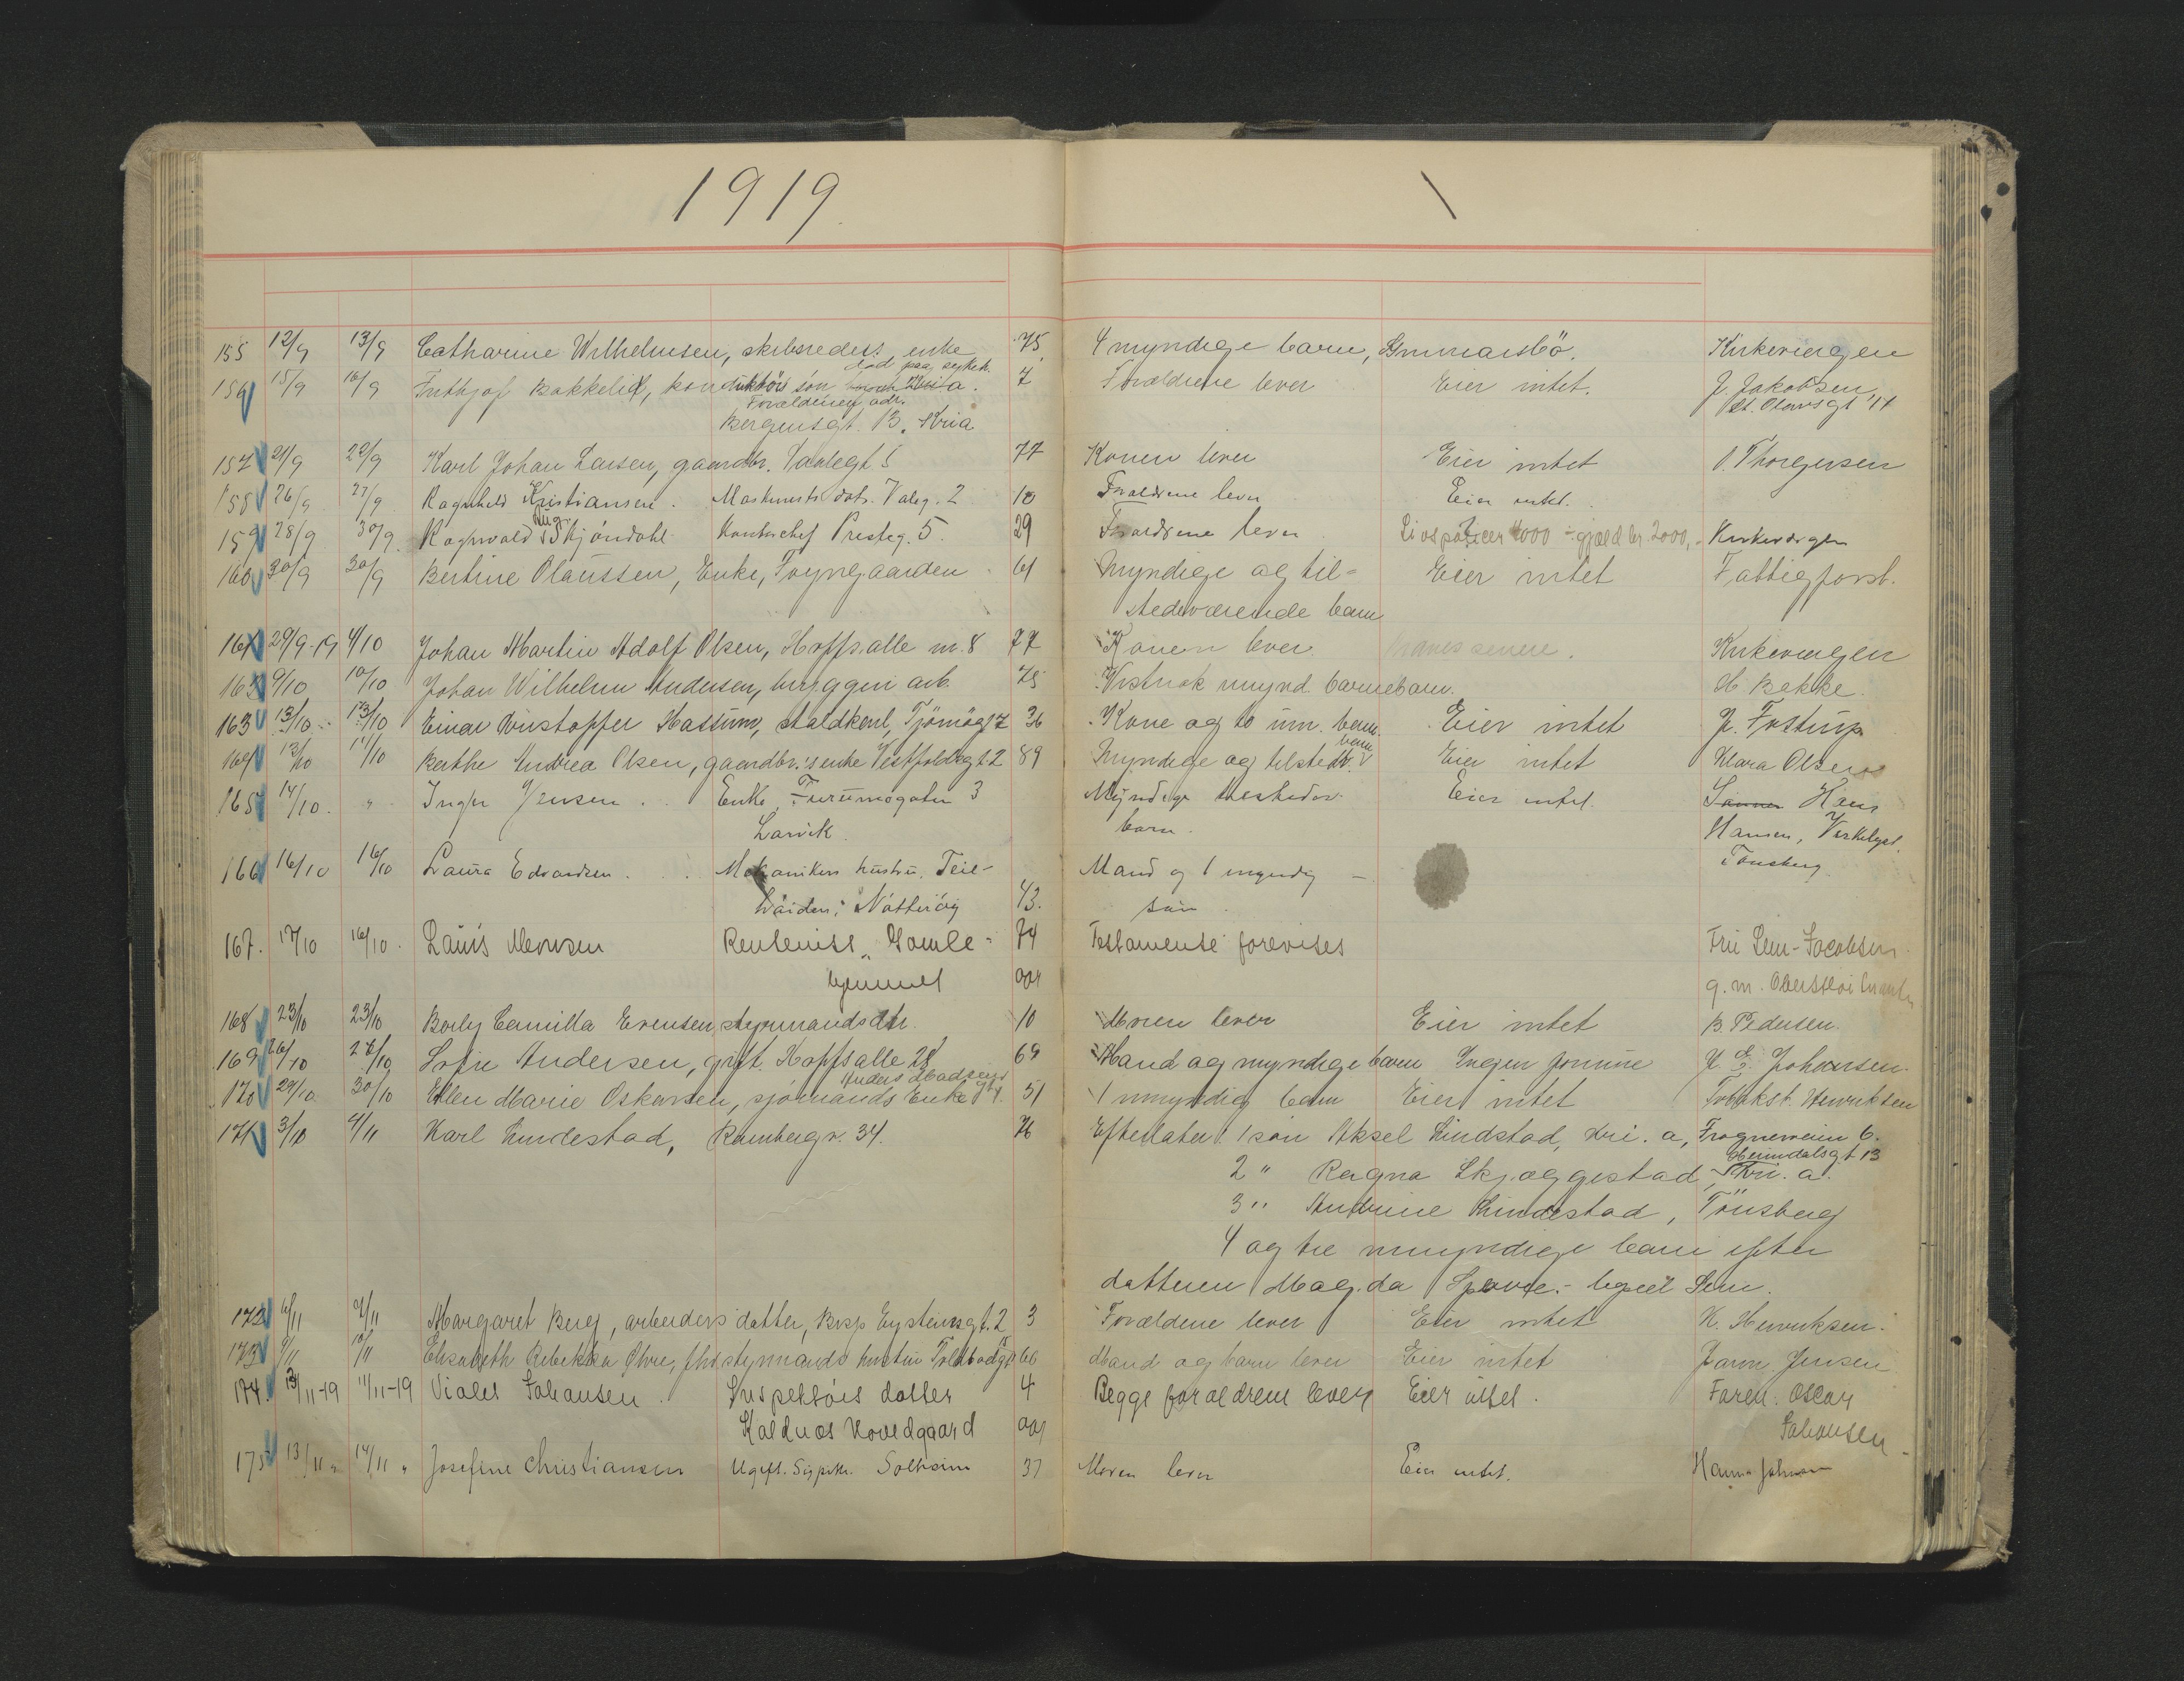 1919
155 12/9 13/9 Catharine Wilhelmsen, skibsreders enke 75 4 myndige barn, Gunnarsbö. Kirkevergen
156 15/9 16/9 Frithjof Bakkelid, konduktörs sön død paa sykeh. 7 Forældrene lever Eier intet. J. Jakobsen
Forældrenes adr. St. Olavsgt 14
Bergensgt. 13. Kria
157 21/9 22/9 Karl Johan Larsen, gaardbr. 77 Konen lever Eier intet O. Thorgersen
158 26/9 27/9 Ragnhild Kristiansen. Maskinists dat. 2 10 Forældrene lever Eier intet.
159 28/9 30/9 Ragnvald Aug. Skjöndahl Kontorchef Presteg. 5. 29 Forældrene lever Livspolicer 4000 - gjæld kr. 2000,- Kirkevergen
160 30/9 30/9 Bertine Olaussen, Enke, 61 Myndige og til-
Eier intet Fattigforst.
stedeværende barn
161 29/9-19 4/10 Johan Martin Adolf Olsen, Hoffsalle nr. 8 77 Konen lever. Kirkevergen
162 9/10 10/10 Johan Wilhelm Andersen, bryggeri arb. 75 Vistnok mynd. barnebarn. H Bekke.
163 13/10 13/10 Einar Kristoffer Hassum, staldkarl, Tjömögt 7 36 Kone og to um. barn. Eier intet J. Fostrup
164 13/10 14/10 Berthe Andrea Olsen, gaardbr.'s enke Vestfoldgt. 2 89 Myndige og tilstedv. barn Eier intet Klara Olsen
165 14/10. " Inger Jensen. Enke, Furumogaten 3 Myndige tilstedev. Eier intet. Sønnen Hans
Larvik. barn. Hansen, Virkelyst.
i Tønsberg
166 16/10 16/10 Laura Edvardsen. Mekanikers hustru. Teie-
Mand og 1 myndig -
Nötteröy 43. sön.
167. 17/10 16/10. Rentenist "Gamle- 74 Testamente forevises Fru Lem-Jacobsen
hjemmet aar g. m.
168 23/10 23/10 Borly Camilla Evensen, styrmands dtr. 10 Moren lever Eier intet B. Pedersen.
169 26/10 28/10 Sofie Andersen, gift. Hoffsalle 28 69 Mand og myndige barn Ingen formue J. E. Johansen.
170 29/10 30/10 Ellen Marie Oskarsen, sjömands Enke Anders Madsens gt. 51 1 umyndig barn Eier intet Henriksen
171 3/10 4/11 Karl Lindestad, Rambergv. 34. 76 Efterlater 1 sön Aksel Lindstad, Kri. a, Frognerveien 6.
2 " Ragna Skjæggestad, Kri. a. 13
3 " Lindestad, Tönsberg
4 og tre umyndige barn efter
datteren Magda Sem.
172 6/11 7/11 Margaret Berg, arbeiders datter, Bisp Eysteinsgt. 2 3 Forældrene lever Eier intet H. Henriksen.
173 9/11 10/11 Elisabeth Rebekka Öhre, fhv. styrmands hustru Toldbodgt 66 Mand og barn lever Eier intet Jensen
174. 13/11-19 11/11-19 Violet Johansen. Inspektörs datter 4 Begge foreldrene lever Eier intet. Faren: Oscar
Kaldnes Hovedgaard aar Johansen
175 13/11 " 14/11 " Josefine Christiansen Ugift. Solheim 37 Moren lever Eier intet.